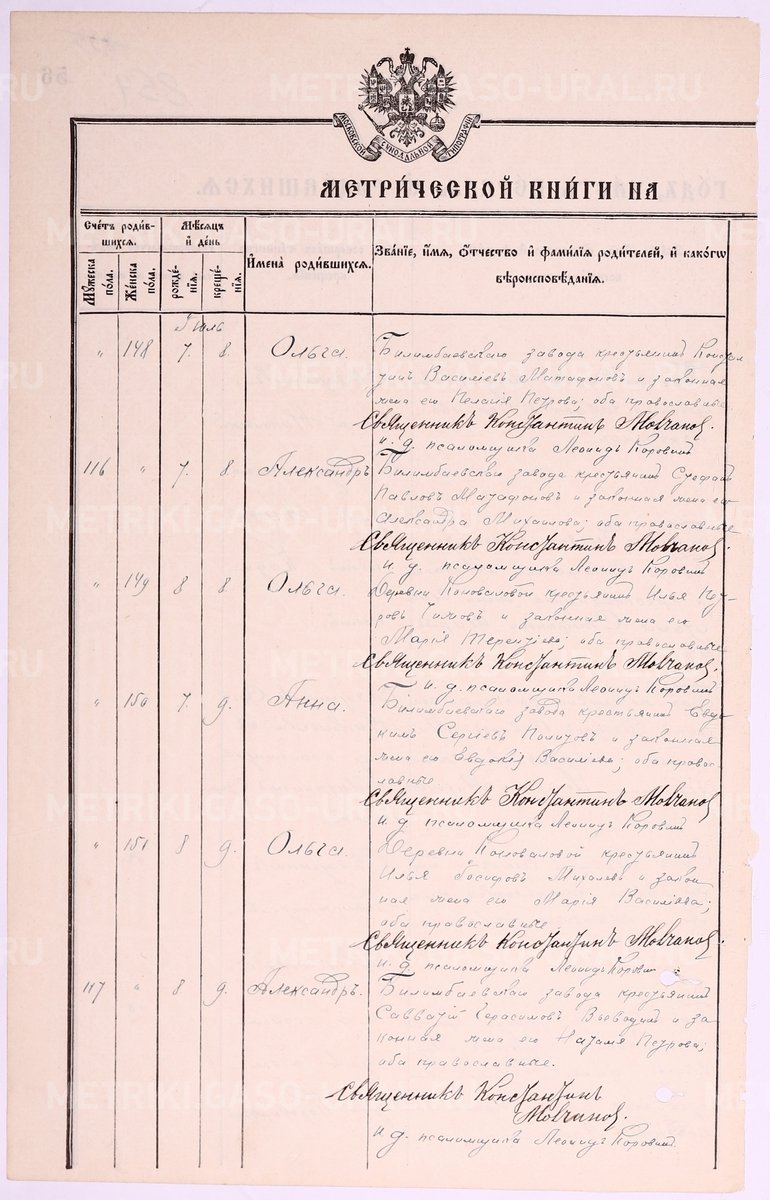 МОСКОВСКОЙ СѴНОДАЛЬНОЙ ТИПОГРАФІИ
МЕТРИ́ЧЕСКОЙ КНИ́ГИ НА
Сче́тъ роди́в-
шихсѧ.
Мѣ́сѧцъ
и҆ де́нь
И҆мена̀ роди́вшихсѧ.
Зва́нїе, и҆́мѧ, ѻ҆́тчество и҆ фами́лїѧ роди́телей, и҆ како́гѡ
вѣроисповѣ́данїѧ.
Мꙋ́жеска по́ла.
Же́нска по́ла.
рожде́-нїѧ.
креще́-нїѧ.
Іюль
" 148 7. 8. Ольга. Билимбаевскаго завода крестьянинъ Констан
тинъ Василіевъ Матафоновъ и законная
жена его Пелагія Петрова; оба православные
Священникъ Константинъ Мовчанов.
и. д. псаломщика Леонидъ Коровинъ
116 " 7. 8. Александръ Билимбаевскаго завода крестьянинъ Стефанъ
Павловъ Матафоновъ и законная жена его
Александра Михаилова; оба православные
Священникъ Константинъ Мовчанов.
и. д. псаломщика Леонидъ Коровинъ
" 149 8 8 Ольга. Деревни Коноваловой крестьянинъ Илья Пет-
ровъ и законная жена его
Марія Терентіева; оба православные
Священникъ Константинъ Мовчанов.
и. д. псаломщика Леонидъ Коровинъ
" 150 7. 9. Анна. Билимбаевскаго завода крестьянинъ Евдо-
кимъ Сергіевъ и законная
жена его Евдокія Василіева; оба право-
славные
Священникъ Константинъ Мовчанов
и. д. псаломщика Леонидъ Коровинъ
" 151 8 9. Ольга. Деревни Коноваловой крестьянинъ
Илья Іосифовъ Михалевъ и закон
ная жена его Марія Василіева;
оба православные
Священникъ Константинъ Мовчанов.
и. д. псаломщика Леонидъ Коровин
117 " 8 9. Александръ. Билимбаевскаго завода крестьянинъ
Савватій Герасимовъ и за
конная жена его Наталія Петрова;
оба православные.
Священникъ Константинъ
Мовчанов.
и. д. псаломщика Леонидъ Коровинъ.
METRIKI.GASO-URAL.RU